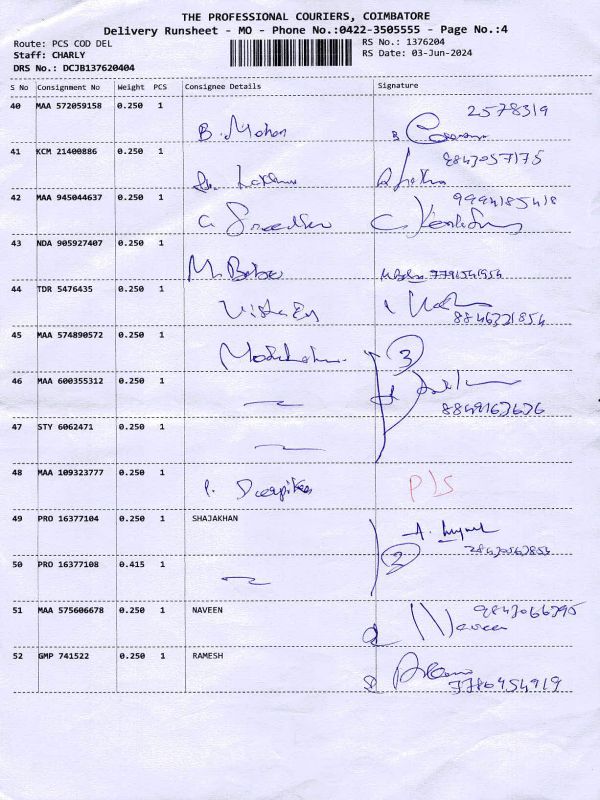 THE PROFESSIONAL COURIERS, COIMBATORE
Delivery Runsheet - MO - Phone No.:0422-3505555 - Page No.:4
Route: PCS COD DEL RS No.: 1376204
Staff: CHARLY RS Date: 03-Jun-2024
DRS No.: DCJB137620404
S No Consignment No Weight PCS Consignee Details Signature
40 MAA 572059158 0.250 1 B. Mohan 2578319
41 KCM 21400886 0.250 1 9843057175
42 MAA 945044637 0.250 1 9994185418
43 NDA 905927407 0.250 1 M. Babu 7791541954
44 TDR 5476435 0.250 1 8846321854
45 MAA 574890572 0.250 1 3
46 MAA 600355312 0.250 1 8849163626
47 STY 6062471 0.250 1
48 MAA 109323777 0.250 1 P. Deepika P/S
49 PRO 16377104 0.250 1 SHAJAKHAN
50 PRO 16377108 0.415 1 2
51 MAA 575606678 0.250 1 NAVEEN Naveen
52 GMP 741522 0.250 1 RAMESH 7786454919